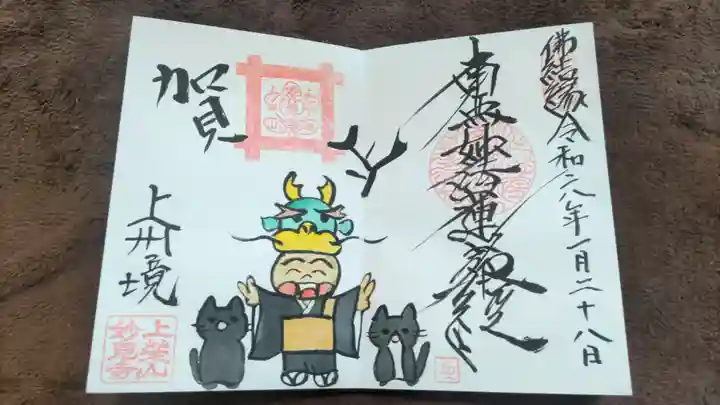 佛結縁 令和六年一月二十八日
南無妙法蓮華経
賀
上州境
上栄山
妙見寺